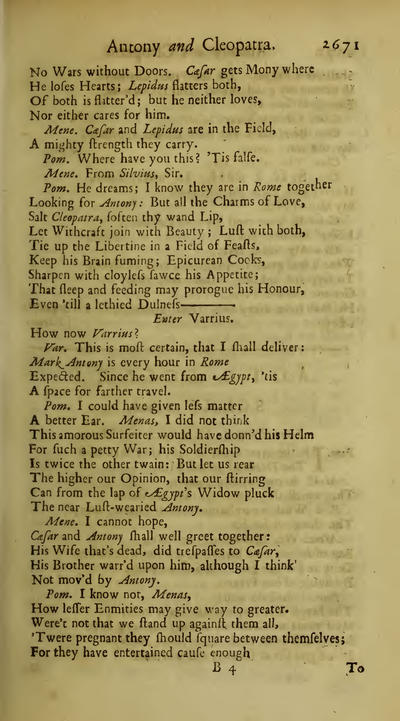 Antony and Cleopatra. 2671
No Wars without Doors. Cæſar gets Mony where
He loſes Hearts; Lepidus flatters both,
Of both is flatter'd; but he neither loves,
Nor either cares for him.
Mene. Cæſar and Lepidus are in the Field,
A mighty ſtrength they carry.
Pom. Where have you this? 'Tis falſe.
Mene. From Silvius, Sir.
Pom. He dreams; I know they are in Rome together
Looking for Antony: But all the Charms of Love,
Salt Cleopatra, ſoften thy wand Lip,
Let Withcraft join with Beauty; Luſt with both,
Tie up the Libertine in a Field of Feaſts,
Keep his Brain fuming; Epicurean Cooks,
Sharpen with cloyleſs ſawce his Appetite;
That ſleep and feeding may prorogue his Honour,
Even 'till a lethied Dulneſs———.
Enter Varrius.
How now Varrius?
Var. This is moſt certain, that I ſhall deliver:
Mark Antony is every hour in Rome
Expected. Since he went from Ægypt, 'tis
A ſpace for farther travel.
Pom. I could have given leſs matter
A better Ear. Menas, I did not think
This amorous Surfeiter would have donn'd his Helm
For ſuch a petty War; his Soldierſhip
Is twice the other twain: But let us rear
The higher our Opinion, that our ſtirring
Can from the lap of Ægypt's Widow pluck
The near Luſt-wearied Antony.
Mene. I cannot hope,
Cæſar and Antony ſhall well greet together:
His Wife that's dead, did treſpaſſes to Cæſar,
His Brother warr'd upon him, although I think'
Not mov'd by Antony.
Pom. I know not, Menas,
How leſſer Enmities may give way to greater.
Were't not that we ſtand up againſt them all,
'Twere pregnant they ſhould ſquare between themſelves;
For they have entertained cauſe enough
B 4 To